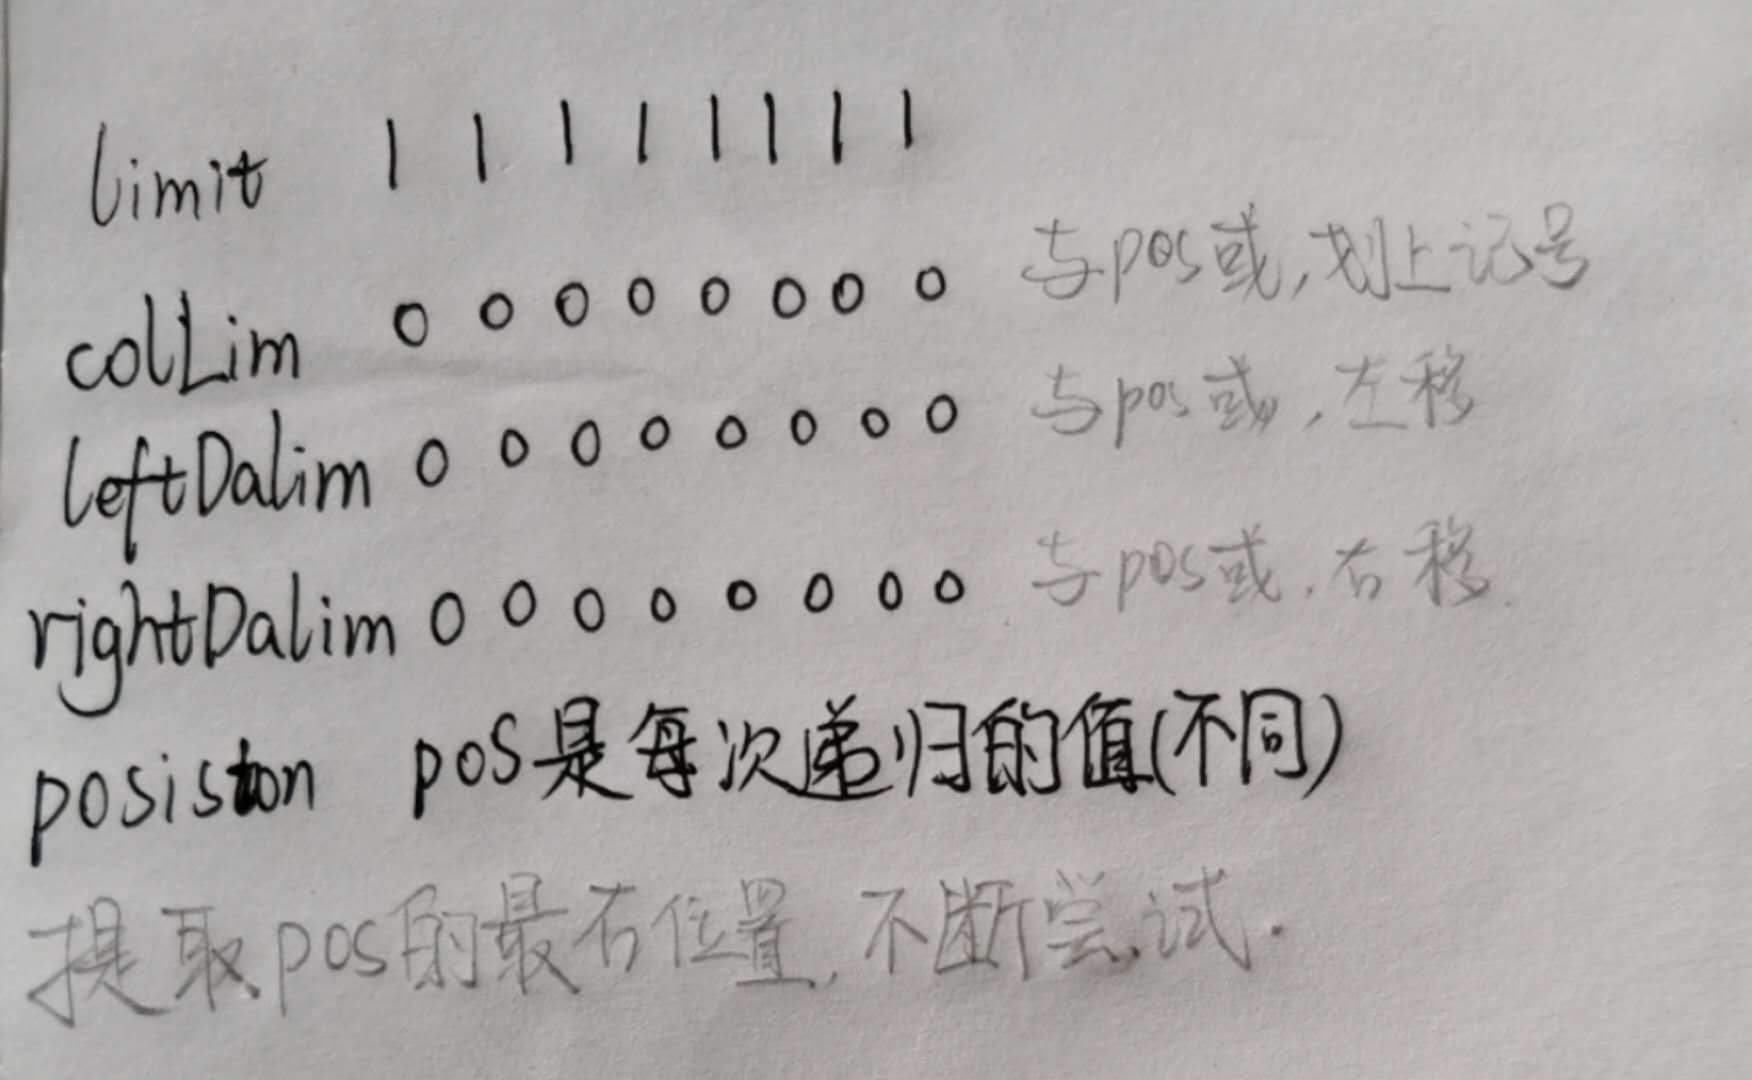 limit 1 1 1 1 1 1 1 1
colLim 0 0 0 0 0 0 0 0 与pos或,划上记号
leftDalim 0 0 0 0 0 0 0 0 与pos或,左移
rightDalim 0 0 0 0 0 0 0 0 与pos或.右移.
posiston pos是每次递归的值(不同)
提取pos的最右位置,不断尝试.